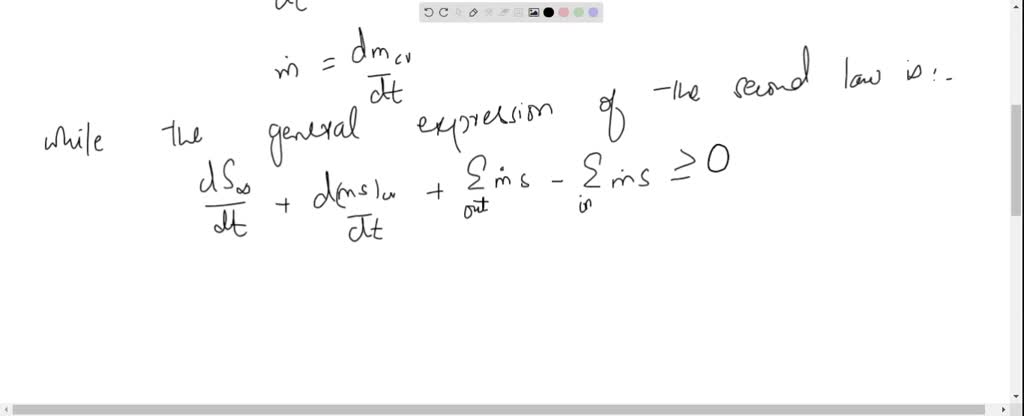 ṁ = dm_cv/dt
while the general expression of the second law is:-
dS∞/dt + d(ms)_cv/dt + Σ_out ṁs - Σ_in ṁs ≥ 0